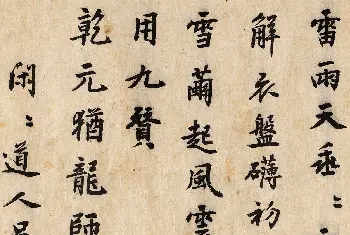 雷雨天垂:
解衣盤礴初
雪繭起風雲
用九賢
乾元猶龍師
閑:道人